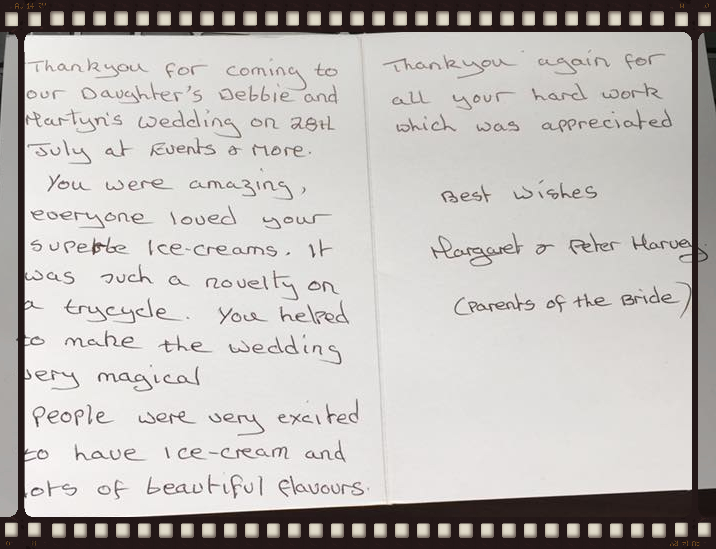 Thankyou for coming to
our Daughter's Debbie and
Martyn's wedding on 28th
July at Events & More.
You were amazing,
everyone loved your
superbe Ice-creams. It
was such a novelty on
a trycycle. You helped
to make the wedding
very magical
People were very excited
to have Ice-cream and
lots of beautiful flavours.
Thankyou again for
all your hard work
which was appreciated
Best Wishes
Margaret & Peter Harvey
(Parents of the Bride)